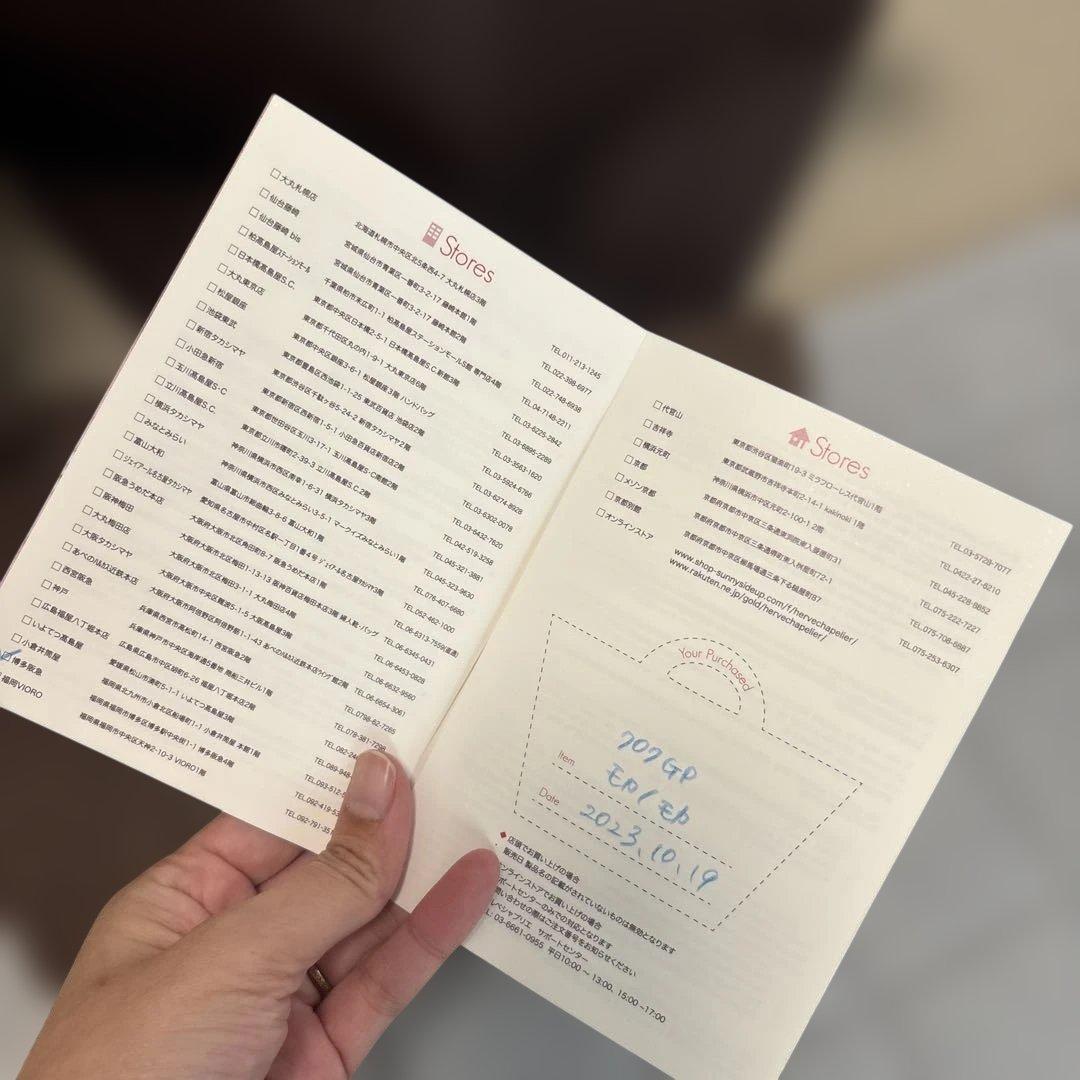 Stores
□大丸札幌店 北海道札幌市中央区北5条西4-7 大丸札幌店3階 TEL.011-213-1245
□仙台藤崎 宮城県仙台市青葉区一番町3-2-17 藤崎本館1階 TEL.022-398-6977
□仙台藤崎 bis 宮城県仙台市青葉区一番町3-2-17 藤崎本館2階 TEL.022-748-6938
□柏高島屋ステーションモール 千葉県柏市末広町1-1 柏高島屋ステーションモールS館 専門店4階 TEL.04-7148-2211
□日本橋髙島屋S.C. 東京都中央区日本橋2-5-1 日本橋髙島屋S.C.新館3階 TEL.03-6225-2842
□大丸東京店 東京都千代田区丸の内1-9-1 大丸東京店6階 TEL.03-6895-2289
□松屋銀座 東京都中央区銀座3-6-1 松屋銀座3階 ハンドバッグ TEL.03-3563-1620
□池袋東武 東京都豊島区西池袋1-1-25 東武百貨店 池袋店2階 TEL.03-5924-6766
□新宿タカシマヤ 東京都渋谷区千駄ヶ谷5-24-2 新宿タカシマヤ2階 TEL.03-6274-8928
□小田急新宿 東京都新宿区西新宿1-5-1 小田急百貨店新宿店2階 TEL.03-6302-0078
□玉川髙島屋S・C 東京都世田谷区玉川3-17-1 玉川髙島屋S・C南館2階 TEL.03-6432-7620
□立川髙島屋S.C. 東京都立川市曙町2-39-3 立川髙島屋S.C.2階 TEL.042-519-3258
□横浜タカシマヤ 神奈川県横浜市西区南幸1-6-31 横浜タカシマヤ3階 TEL.045-321-3881
□みなとみらい 神奈川県横浜市西区みなとみらい3-5-1 マークイズみなとみらい1階 TEL.045-323-9630
□富山大和 富山県富山市総曲輪3-8-6 富山大和1階 TEL.076-407-6680
□ジェイアール名古屋タカシマヤ 愛知県名古屋市中村区名駅一丁目1番4号 ジェイアール名古屋タカシマヤ3階 TEL.052-462-1000
□阪急うめだ本店 大阪府大阪市北区角田町8-7 阪急うめだ本店1階 TEL.06-6313-7559(直通)
□阪神梅田 大阪府大阪市北区梅田1-13-13 阪神百貨店梅田本店3階 婦人靴・バッグ TEL.06-6345-0431
□大丸梅田店 大阪府大阪市北区梅田3-1-1 大丸梅田店4階 TEL.06-6453-0828
□大阪タカシマヤ 大阪府大阪市中央区難波5-1-5 大阪髙島屋3階 TEL.06-6632-9560
□あべのハルカス近鉄本店 大阪府大阪市阿倍野区阿倍野筋1-1-43 あべのハルカス近鉄本店ウイング館2階 TEL.06-6654-3061
□西宮阪急 兵庫県西宮市高松町14-1 西宮阪急2階 TEL.0798-62-7265
□神戸 兵庫県神戸市中央区海岸通5番地 商船三井ビル1階 TEL.078-381-7298
□広島福屋八丁堀本店 広島県広島市中区胡町6-26 福屋八丁堀本店2階 TEL.082-24
□いよてつ髙島屋 愛媛県松山市湊町5-1-1 いよてつ髙島屋3階 TEL.089-948
□小倉井筒屋 福岡県北九州市小倉北区船場町1-1 小倉井筒屋 本館1階 TEL.093-512-5
博多阪急 福岡県福岡市博多区博多駅中央街1-1 博多阪急4階 TEL.092-419-52
福岡VIORO 福岡県福岡市中央区天神2-10-3 VIORO1階 TEL.092-791-357
Stores
□代官山 東京都渋谷区猿楽町19-3 ミラフローレス代官山1階 TEL.03-5728-7077
□吉祥寺 東京都武蔵野市吉祥寺本町2-14-1 kakinoki 1階 TEL.0422-27-6210
□横浜元町 神奈川県横浜市中区元町2-100-1 2階 TEL.045-228-8852
□京都 京都府京都市中京区三条通東洞院東入菱屋町31 TEL.075-222-7227
□メゾン京都 京都府京都市中京区三条通柳馬場東入桝屋町72-1 TEL.075-708-6687
□京都別館 京都府京都市中京区柳馬場通三条下る槌屋町87 TEL.075-253-6307
□オンラインストア www.shop-sunnysideup.com/f/hervechapelier/
www.rakuten.ne.jp/gold/hervechapelier/
Your Purchased
707GP
Item モカ/モカ
Date 2023.10.19
◆店頭でお買い上げの場合
販売日 製品名の記載がされていないものは無効となります
ンラインストアでお買い上げの場合
ポートセンターのみでの対応となります
問い合わせの際はご注文番号をお知らせください
レベシャプリエ サポートセンター
L: 03-6661-0955 平日10:00 ～ 13:00、15:00 ~17:00